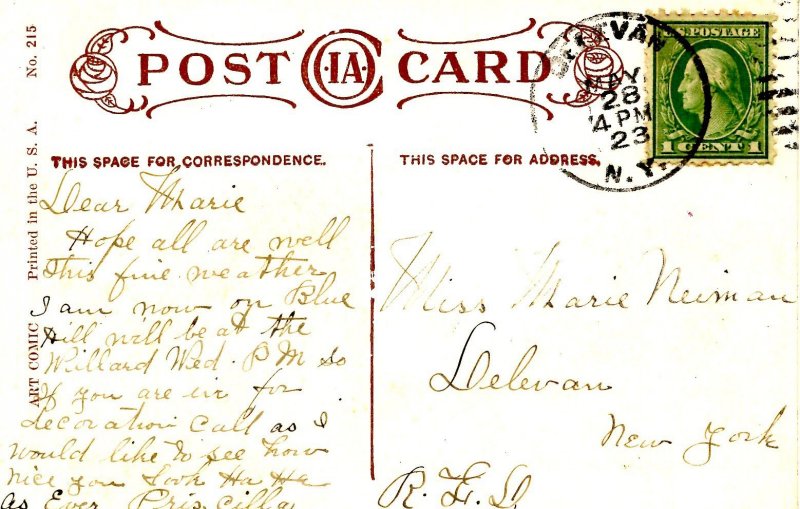 No. 215
Printed in the U. S. A.
ART COMIC
POST CIA CARD
THIS SPACE FOR CORRESPONDENCE.
Dear Marie
Hope all are well
This fine weather
I am now on Blue
Hill will be at the
Willard Wed. P M so
If you are in for
decoration call as I
would like to see how
nice you look Ha Ha
as Ever Priscilla
THIS SPACE FOR ADDRESS.
DELEVAN
MAY
28
4 PM
23
N.Y.
U.S. POSTAGE
1 CENT 1
Miss Marie Neiman
Delevan
New York
R. F. D